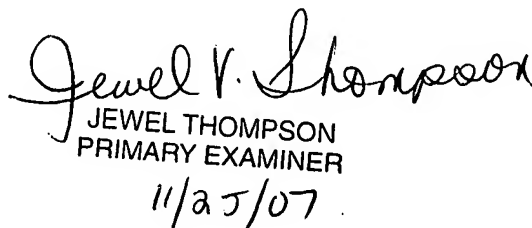 Jewel V. Thompson
JEWEL THOMPSON
PRIMARY EXAMINER
11/25/07